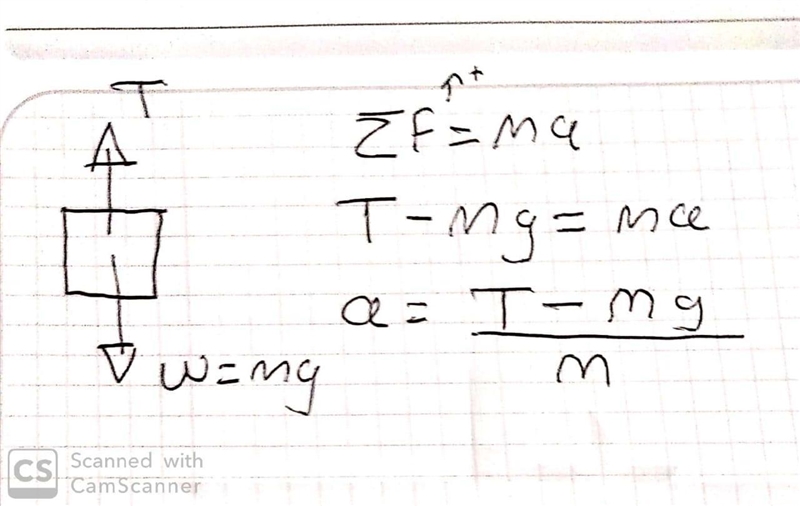 T
↑+
ΣF = ma
T - mg = ma
a = T - mg
m
w = mg
CS Scanned with
CamScanner